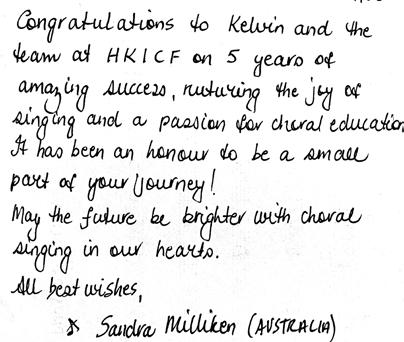 Congratulations to Kelvin and the
team at HKICF on 5 years of
amazing success, nuturing the joy of
singing and a passion for choral education
It has been an honour to be a small
part of your journey!
May the future be brighter with choral
singing in our hearts.
All best wishes,
Sandra Milliken (AUSTRALIA)